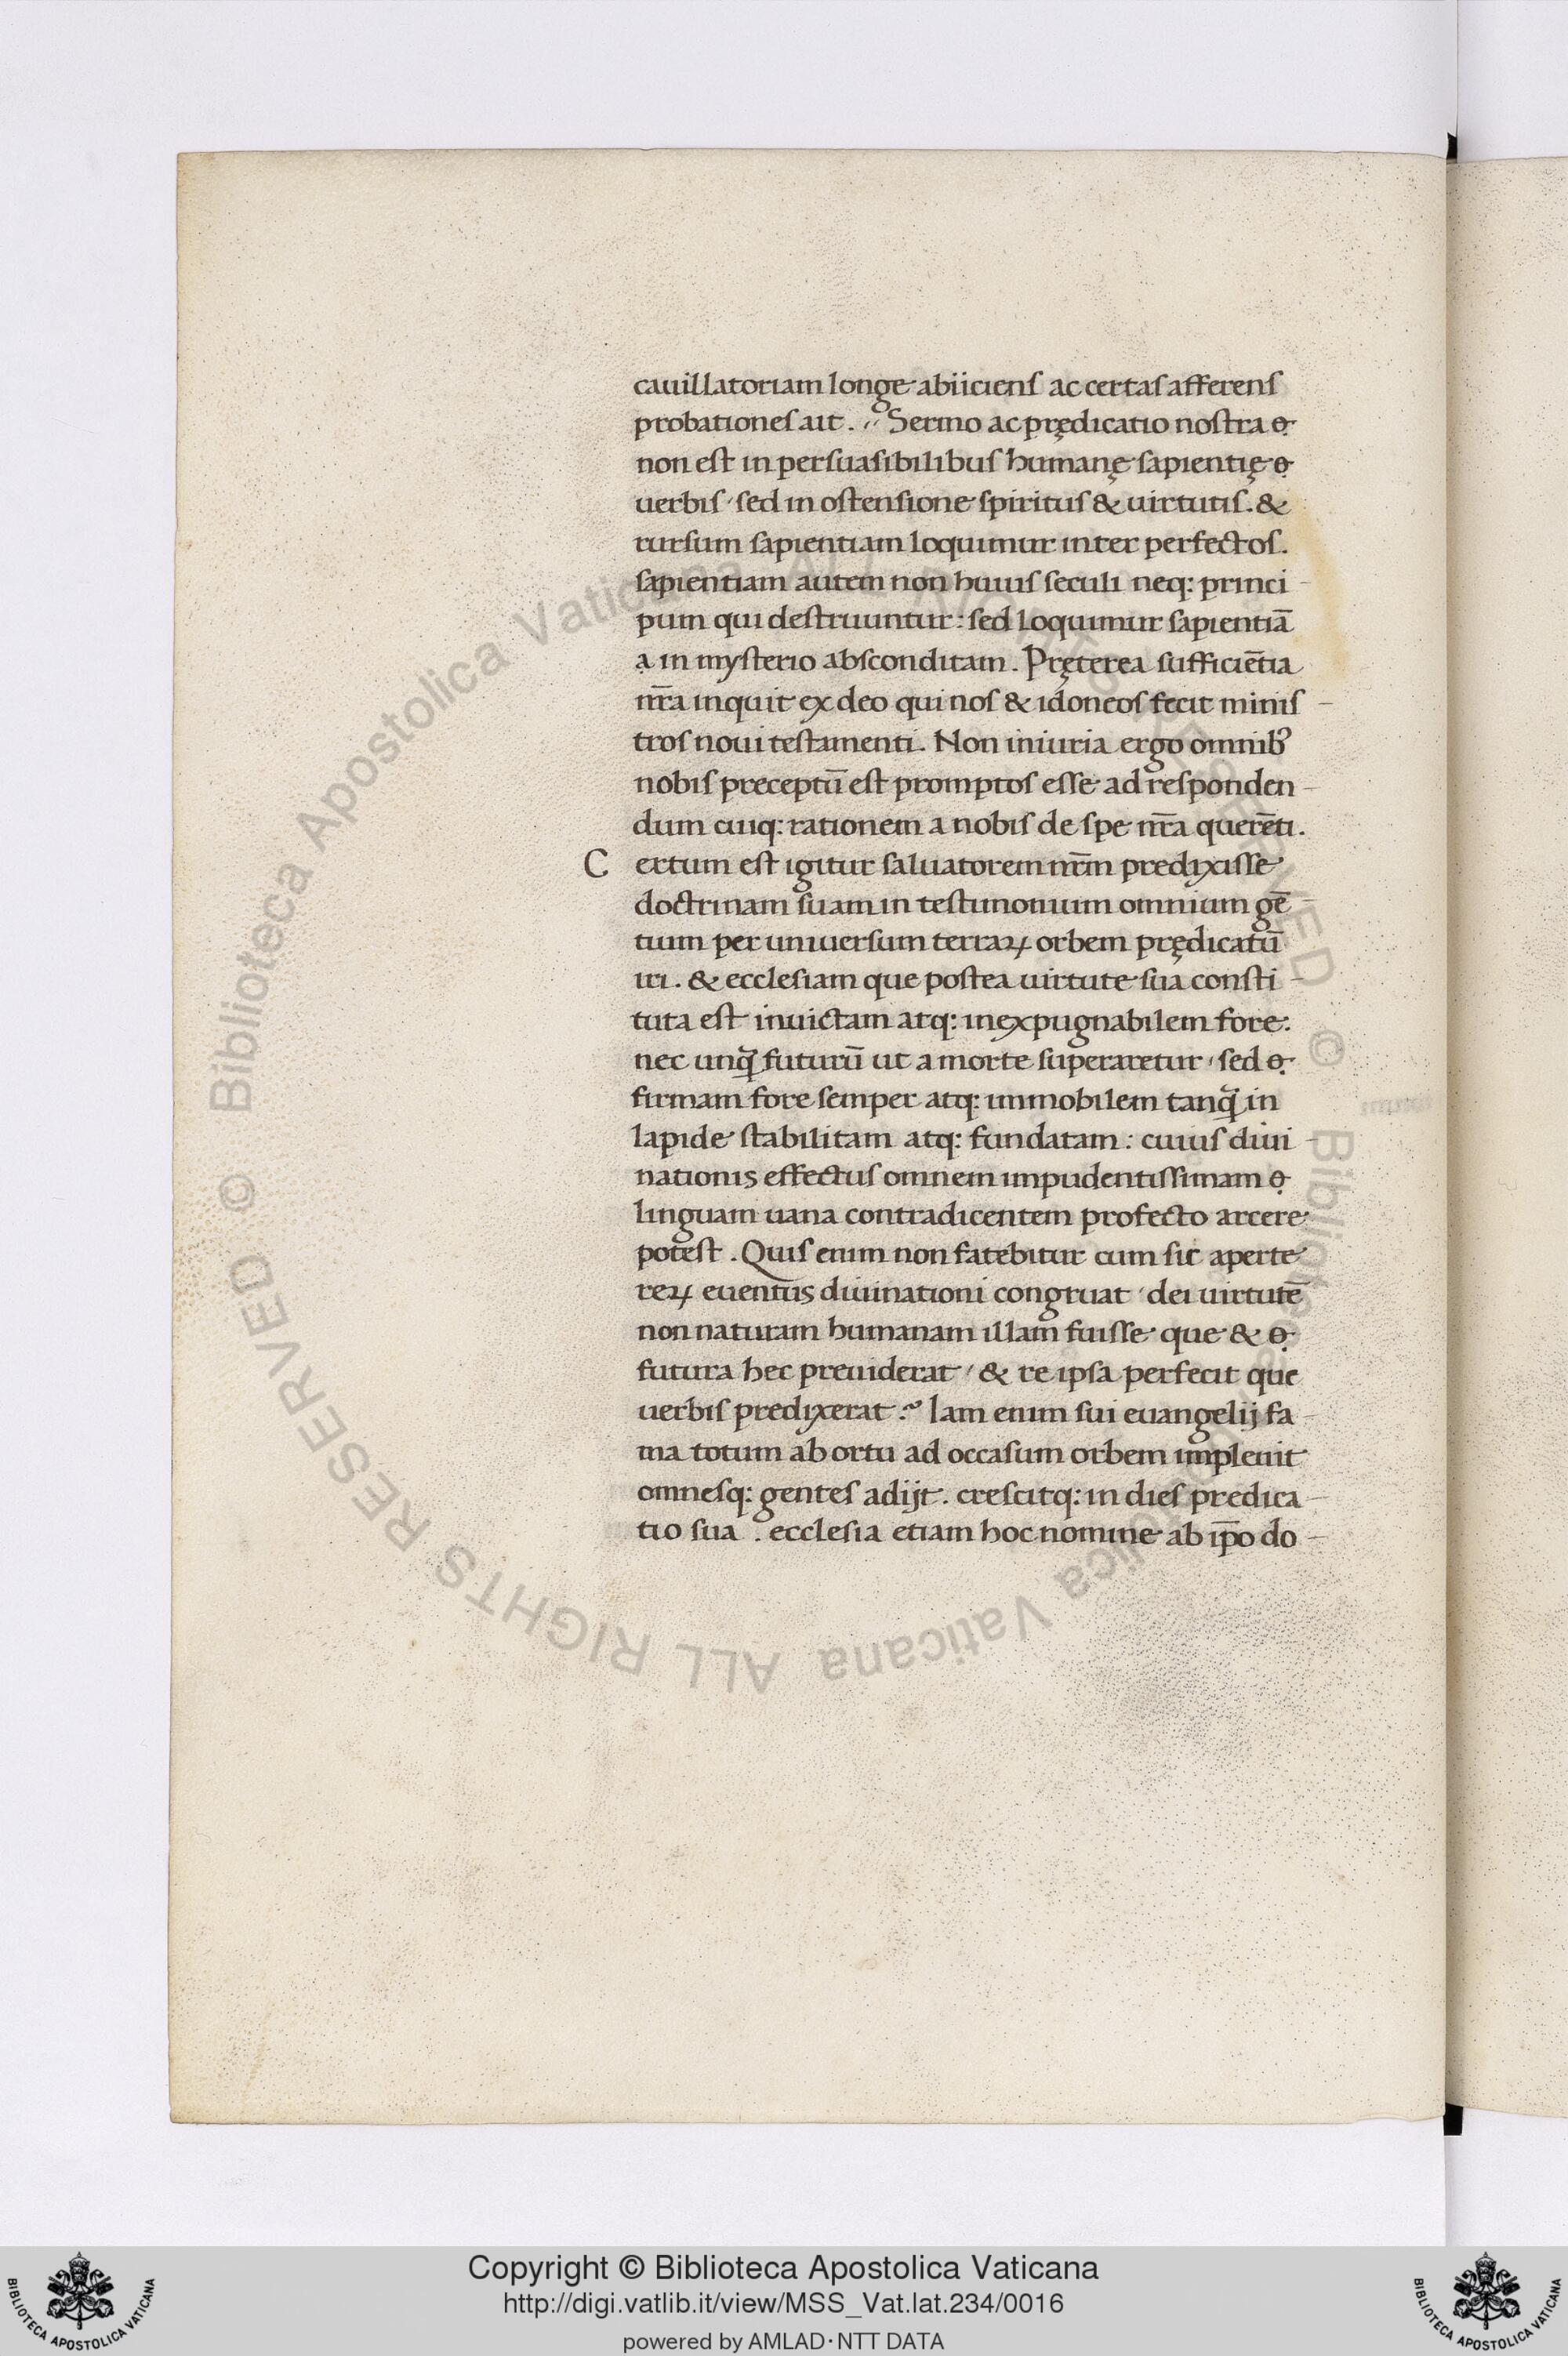 cauillatoriam longe abiiciens ac certas afferens
probationes ait . ,, Sermo ac prędicatio nostra ẹ
non est in persuasibilibus humanę sapientię ẹ
uerbis , sed in ostensione spiritus & uirtutis . &
rursum sapientiam loquimur inter perfectos .
sapientiam autem non huius seculi neq: princi -
pum qui destruuntur : sed loquimur sapientiā
ạ in mysterio absconditam . Pręterea sufficiētia
nr̄a inquit ex deo qui nos & idoneos fecit minis -
tros noui testamenti . Non iniuria ergo omnibꝰ
nobis preceptū est promptos esse ad responden -
dum cuiq: rationem a nobis de spe nr̄a querēti .
C ertum est igitur saluatorem nr̄m predixisse
doctrinam suam in testimonium omnium gē -
tium per uniuersum terraꝝ orbem prędicatū
iri . & ecclesiam que postea uirtute sua consti -
tuta est inuictam atq: inexpugnabilem fore :
nec unq̄ futurū ut a morte superaretur , sed ẹ
firmam fore semper atq: immobilem tanq̄ in
lapide stabilitam atq: fundatam : cuius diui -
nationis effectus omnem impudentissimam ẹ
linguam uana contradicentem profecto arcere
potest . Quis enim non fatebitur cum sic aperte
reꝝ euentus diuinationi congruat , dei uirtutē
non naturam humanam illam fuisse que & ẹ
futura hec preuiderat , & re ipsa perfecit que
uerbis predixerat ? Iam enim sui euangelij fa -
ma totum ab ortu ad occasum orbem impleuit
omnesq: gentes adijt . crescitq: in dies predica -
tio sua . ecclesia etiam hoc nomine ab ip̄o do -
© Biblioteca Apostolica Vaticana ALL RIGHTS RESERVED
© Biblioteca Apostolica Vaticana ALL RIGHTS RESERVED
Copyright © Biblioteca Apostolica Vaticana
http://digi.vatlib.it/view/MSS_Vat.lat.234/0016
powered by AMLAD·NTT DATA
BIBLIOTECA APOSTOLICA VATICANA
BIBLIOTECA APOSTOLICA VATICANA